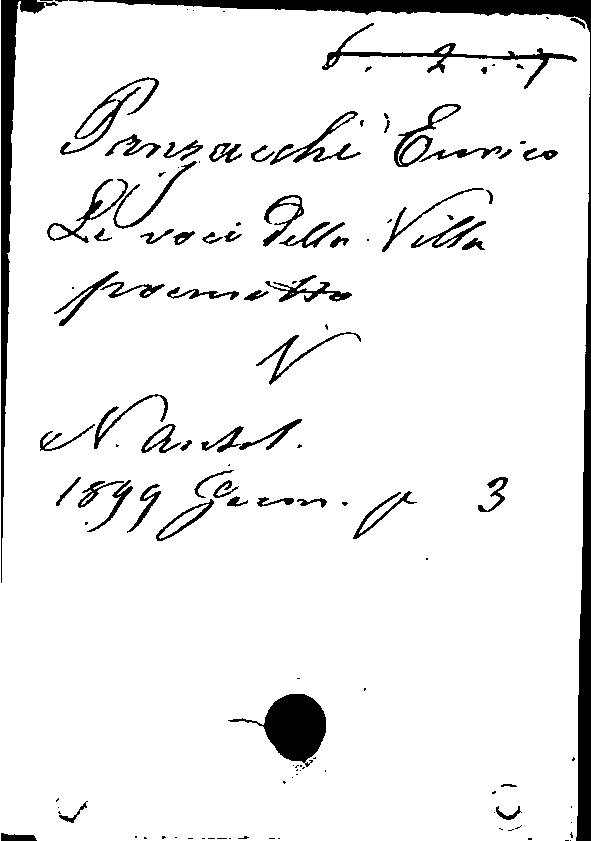 6. 2. 7
Panzacchi Enrico
Le voci della Villa
poemetto
V
N. Antol.
1899 Genn. p 3